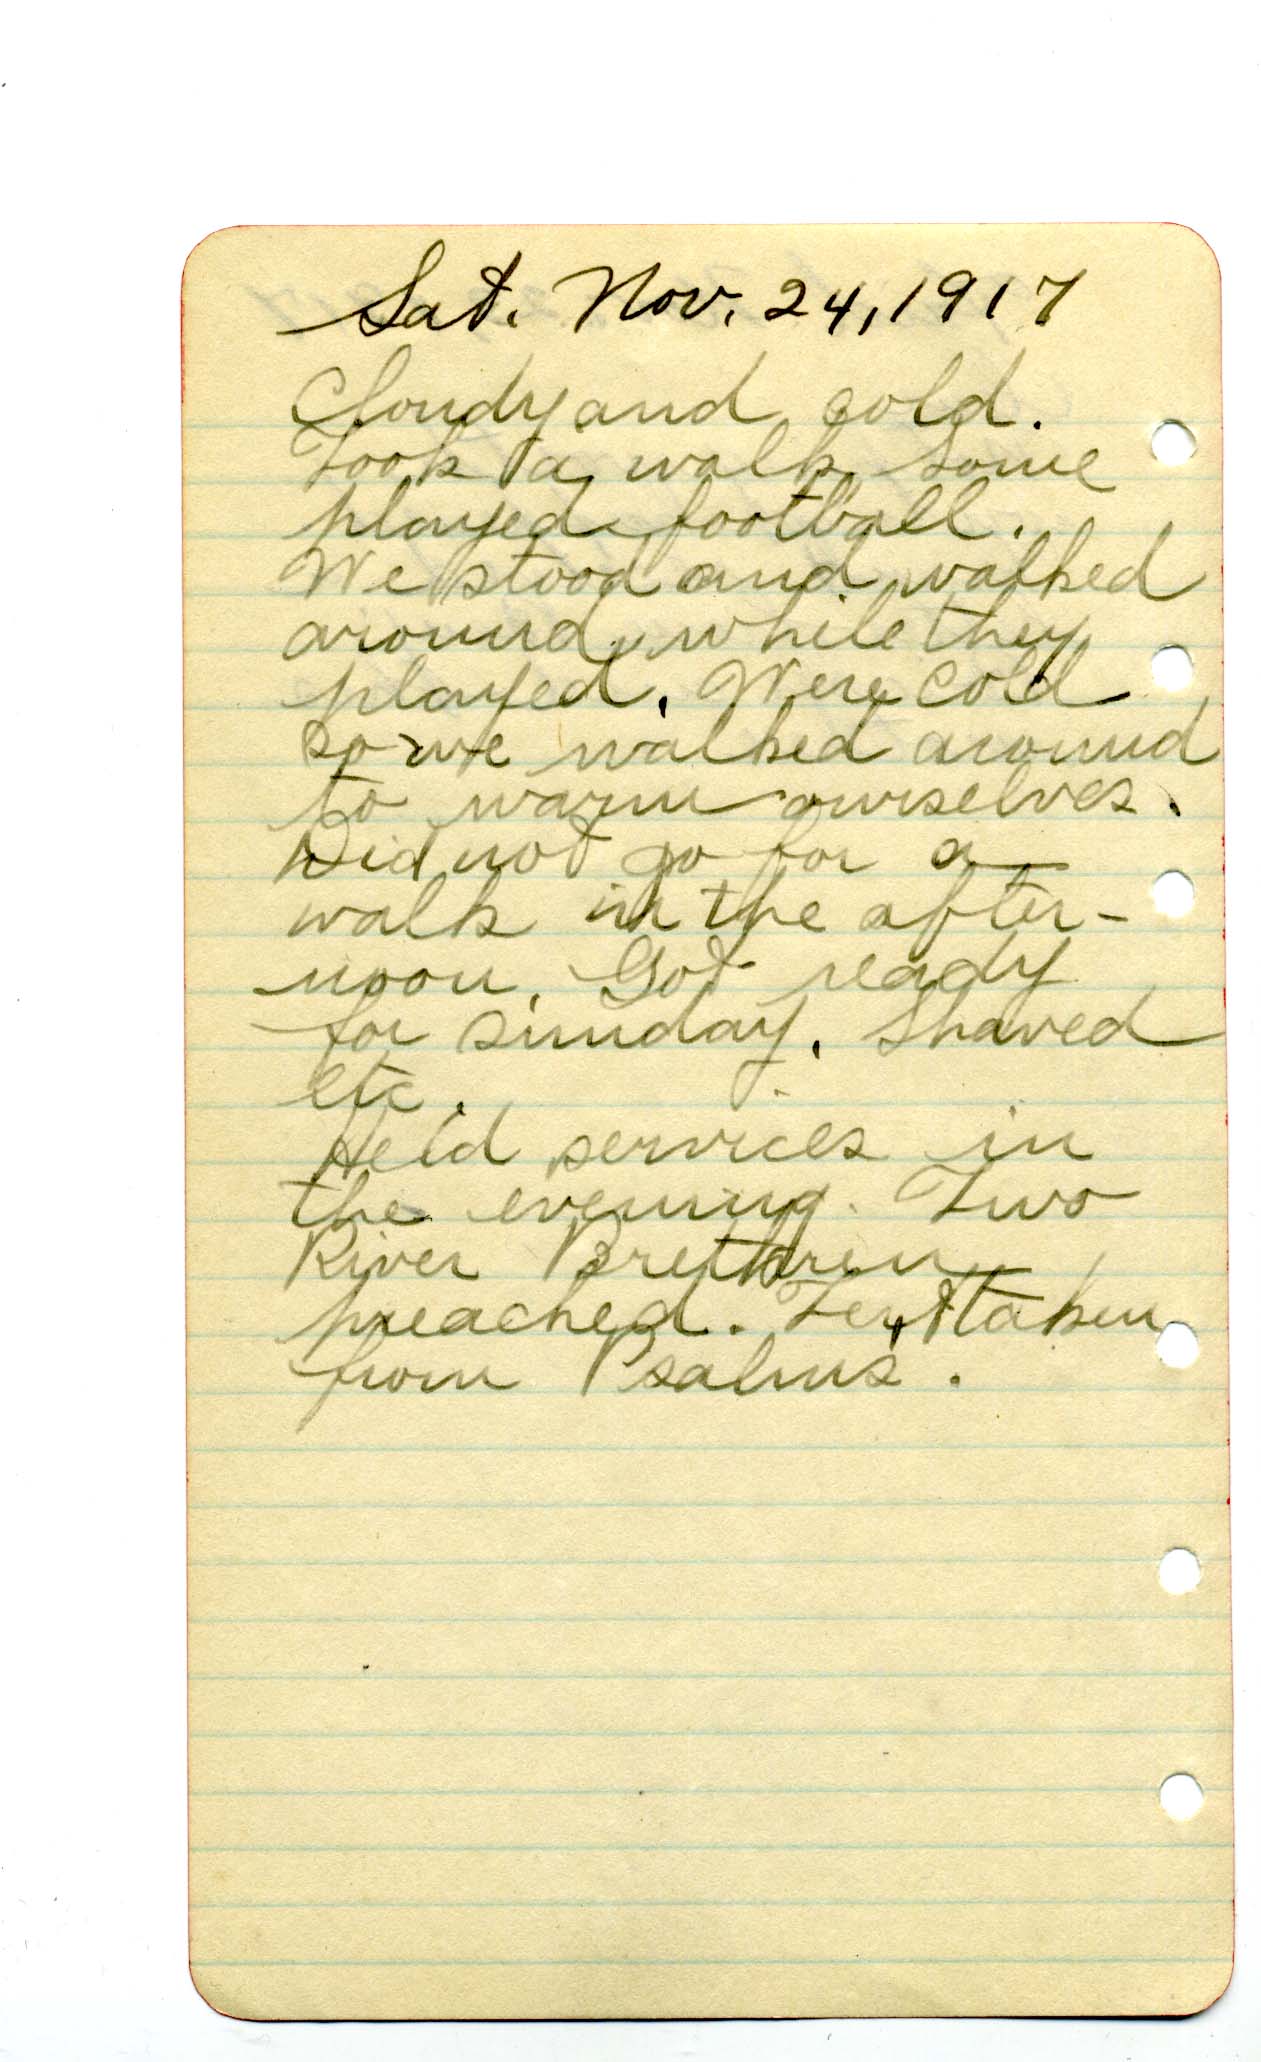 Sat. Nov. 24, 1917
Cloudy and cold.
Took a walk. Some
played football.
We stood and walked
around while they
played. Were cold
so we walked around
to warm ourselves.
Did not go for a
walk in the after-
noon. Got ready
for Sunday. Shaved
etc.
Held services in
the evening. Two
River Brethren
preached. Text taken
from Psalms.